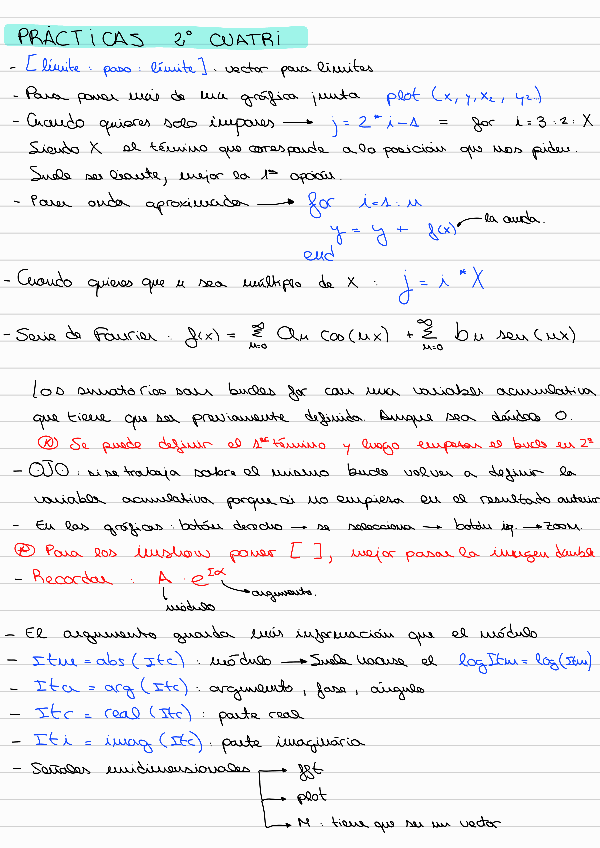 PRÁCTICAS 2º CUATRI
- [límite : paso : límite] . vector para límites
- Para poner más de una gráfica junta plot (x, y, x2, y2..)
- Cuando quieres solo impares → j = 2*i-1 = for i=3:2:X
Siendo X el término que corresponde a la posición que nos piden.
Suele ser leante, mejor la 1ª opción.
- Poner onda aproximada → for i=1:n
y = y + f(x) la onda.
end
- Cuando quieres que n sea múltiplo de X : j = i * X
- Serie de Fourier : f(x) = ∞ Σ n=0 an cos(nx) + ∞ Σ n=0 bn sen(nx)
Los sumatorios son bucles for con una variable acumulativa
que tiene que ser previamente definida. Aunque sea dándole 0.
Ⓡ Se puede definir el 1er término y luego empezar el bucle en 2º
- OJO : si se trabaja sobre el mismo bucle volver a definir la
variable acumulativa porque si no empieza en el resultado anterior
- En las gráficas : botón derecho → se selecciona → botón izq. → zoom.
Ⓡ Para los imshow poner [ ], mejor pasar la imagen double
- Recordar : A · e^Iα
módulo argumento.
- El argumento guarda más información que el módulo
- Itm = abs (Itc) : módulo → Suele usarse el logItm = log(Itm)
- Ita = arg (Itc) : argumento, fase, ángulo
- Itr = real (Itc) : parte real
- Iti = imag (Itc) : parte imaginaria
- Señales unidimensionales → fft
→ plot
→ N : tiene que ser un vector